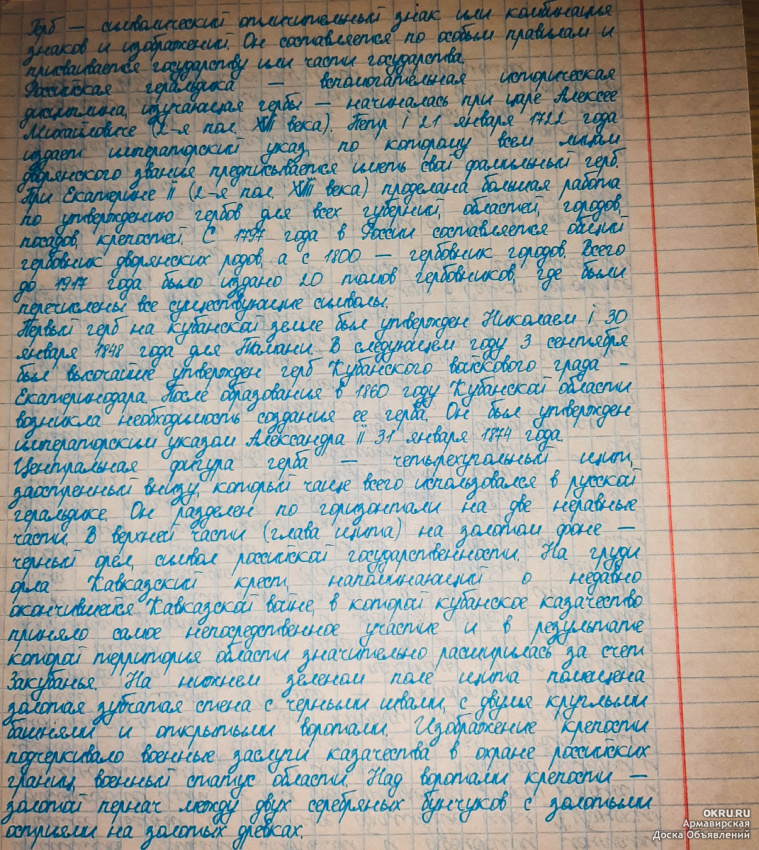 Герб — символический отличительный знак или комбинация
знаков и изображений. Он составляется по особым правилам и
присваивается государству или части государства.
Российская геральдика — вспомогательная историческая
дисциплина, изучающая гербы — начиналась при царе Алексее
Михайловиче (2-я пол. XVII века). Петр I 21 января 1722 года
издает императорский указ, по которому всем лицам
дворянского звания предписывается иметь свой фамильный герб.
При Екатерине II (2-я пол. XVIII века) проделана большая работа
по утверждению гербов для всех губерний, областей, городов,
посадов, крепостей. С 1797 года в России составляется общий
гербовник дворянских родов, а с 1800 — гербовник городов. Всего
до 1917 года было издано 20 томов гербовников, где были
перечислены все существующие символы.
Первый герб на кубанской земле был утвержден Николаем I 30
января 1848 года для Тамани. В следующем году 3 сентября
был высочайше утвержден герб Кубанского войскового града -
Екатеринодара. После образования в 1860 году Кубанской области
возникла необходимость создания ее герба. Он был утвержден
императорским указом Александра II 31 января 1874 года.
Центральная фигура герба — четырехугольный щит,
заостренный внизу, который чаще всего использовался в русской
геральдике. Он разделен по горизонтали на две неравные
части. В верхней части (глава щита) на золотом фоне —
черный орел, символ российской государственности. На груди
орла Кавказский крест, напоминающий о недавно
окончившейся Кавказской войне, в которой кубанское казачество
приняло самое непосредственное участие и в результате
которой территория области значительно расширилась за счет
Закубанья. На нижнем зеленом поле щита помещена
золотая зубчатая стена с черными швами, с двумя круглыми
башнями и открытыми воротами. Изображение крепости
подчеркивало военные заслуги казачества в охране российских
границ, военный статус области. Над воротами крепости —
золотой пернач между двух серебряных бунчуков с золотыми
остриями на золотых древках.
OKRU.RU
Армавирская
Доска Объявлений